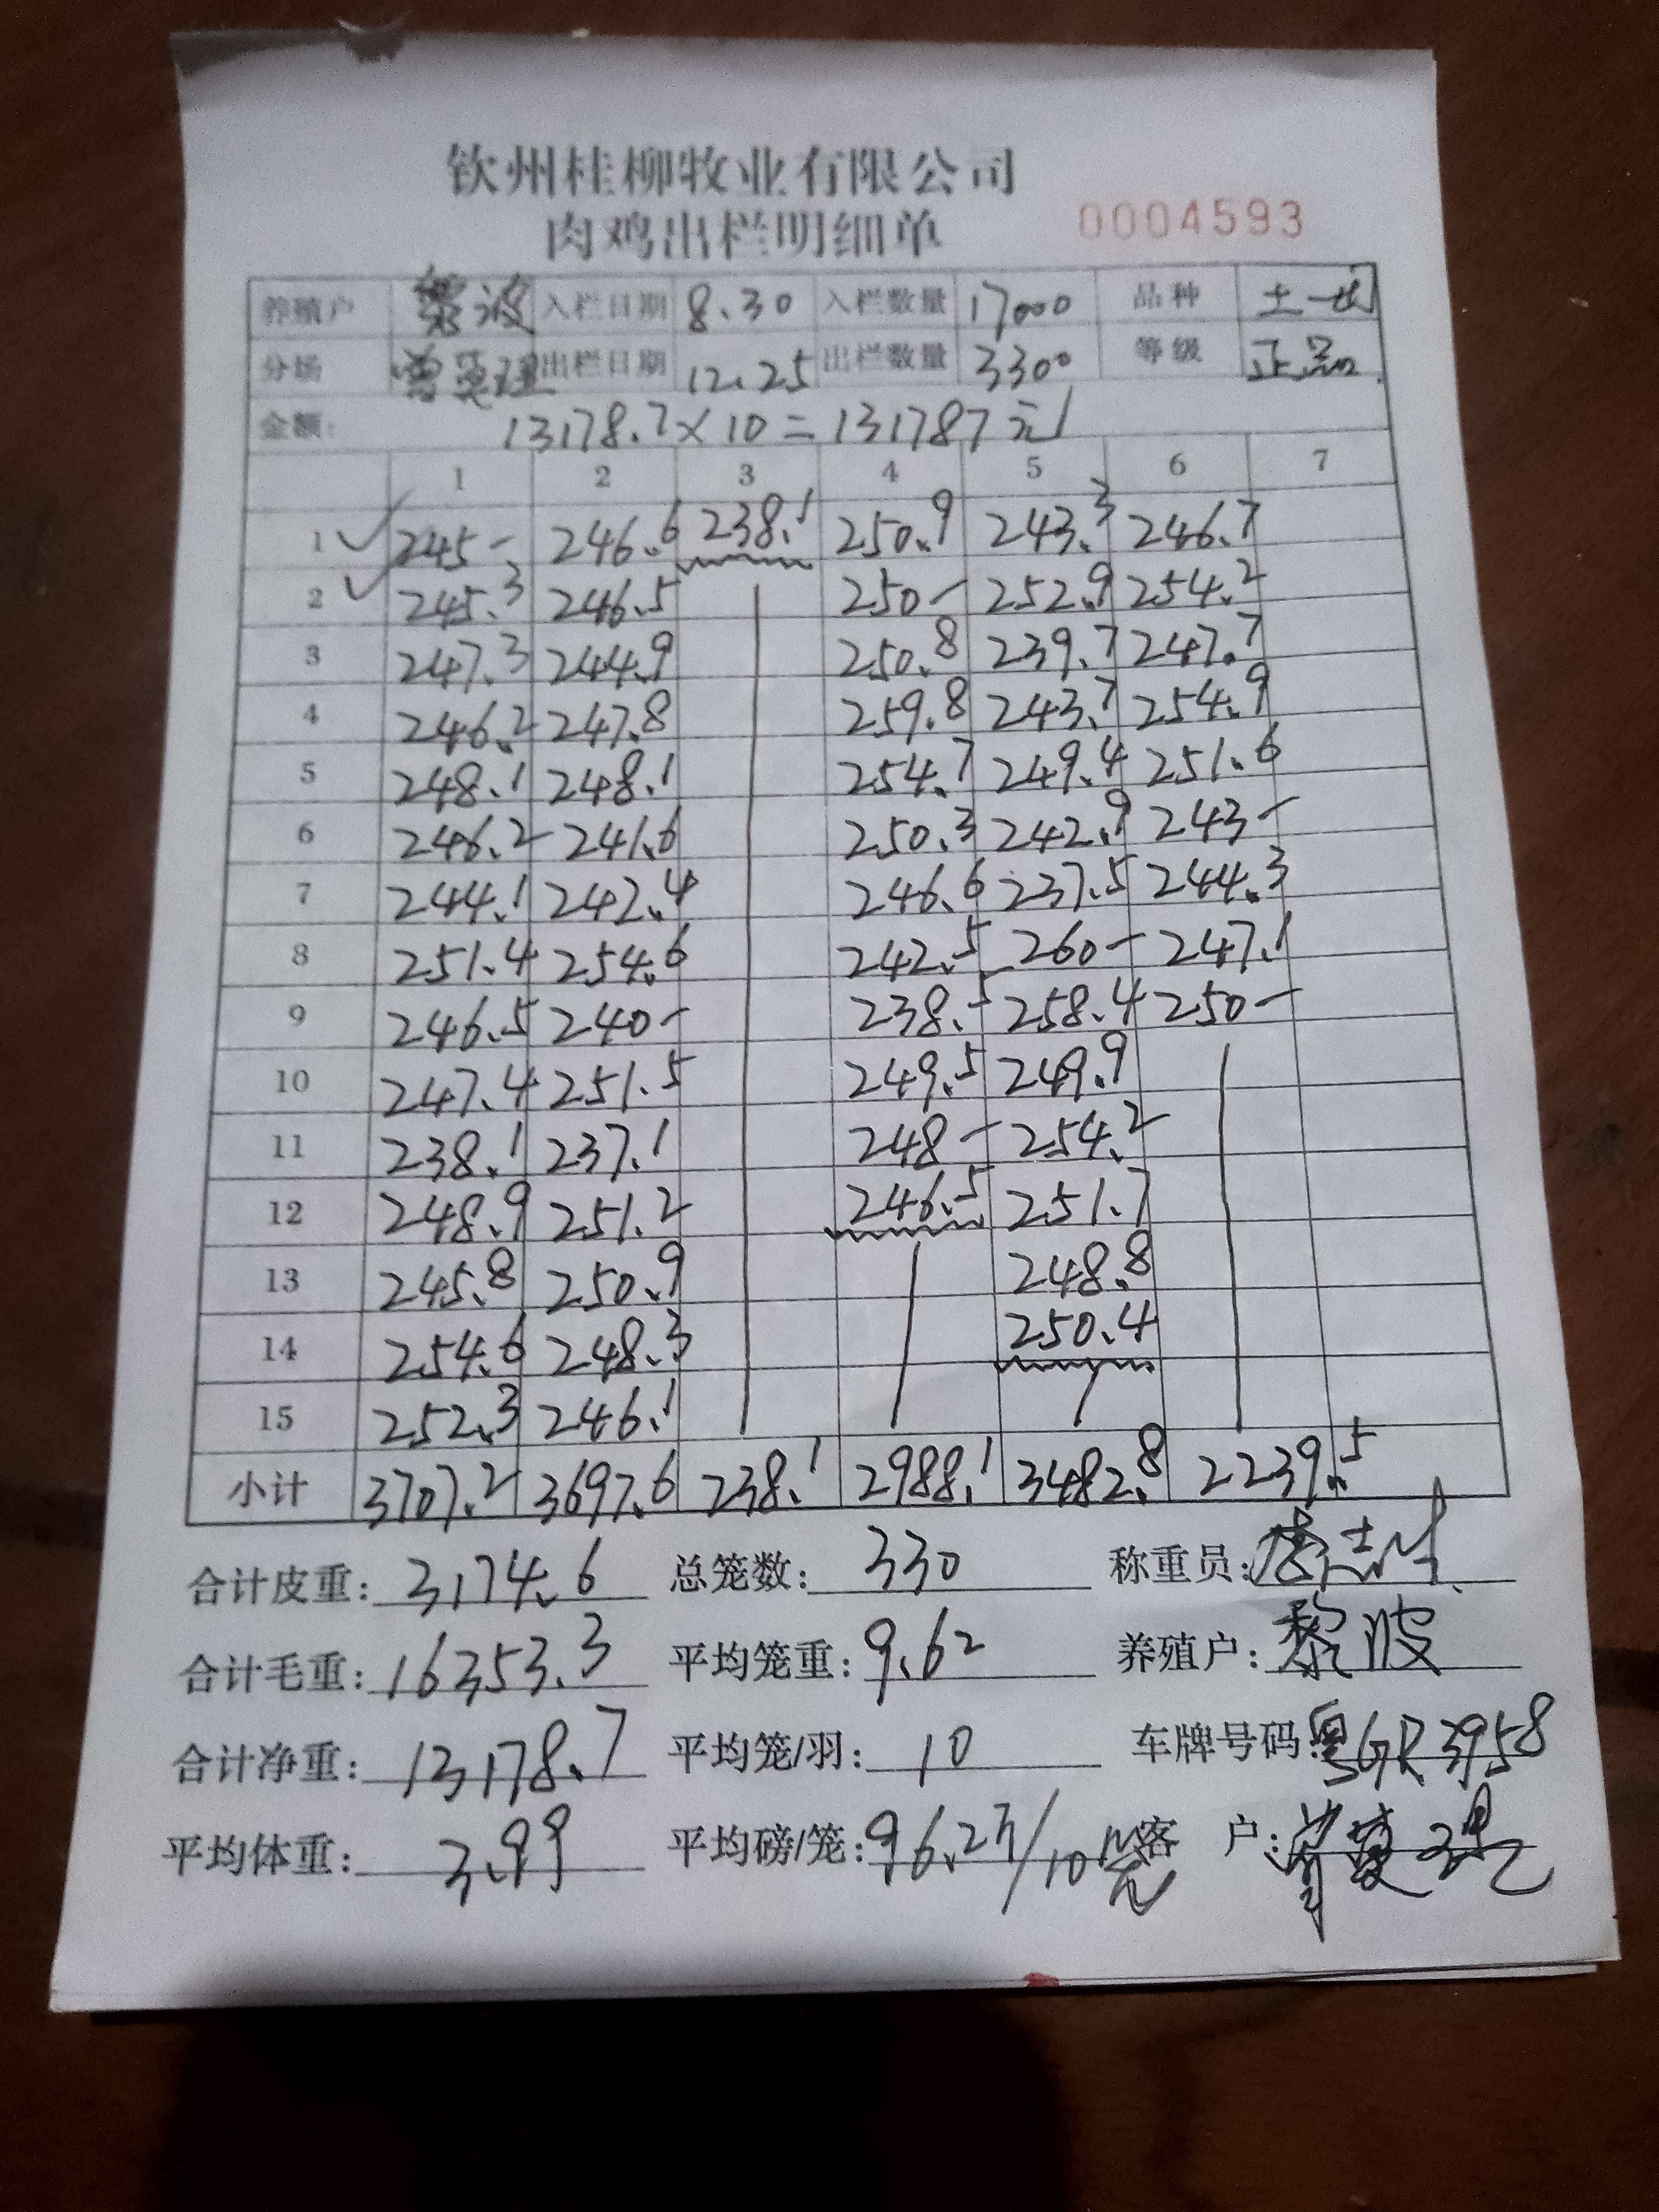 钦州桂柳牧业有限公司
肉鸡出栏明细单 0004593
养殖户 黎波 入栏日期 8.30 入栏数量 17000 品种 土一
分场 出栏日期 12.25 出栏数量 3300 等级 正品
金额: 13178.7×10=131787元
1 2 3 4 5 6 7
1 245- 246.6 238.1 250.9 243.3 246.7
2 245.3 246.5 250- 252.9 254.2
3 247.3 244.9 250.8 239.7 247.7
4 246.2 247.8 259.8 243.7 254.9
5 248.1 248.1 254.7 249.4 251.6
6 246.2 241.6 250.3 242.9 243-
7 244.1 242.4 246.6 237.5 244.3
8 251.4 254.6 242.5 260- 247.1
9 246.5 240- 238.5 258.4 250-
10 247.4 251.5 249.5 249.9
11 238.1 237.1 248- 254.2
12 248.9 251.2 246.5 251.7
13 245.8 250.9 248.8
14 254.6 248.3 250.4
15 252.3 246.1
小计 3707.2 3697.6 238.1 2988.1 3482.8 2239.5
合计皮重: 3174.6 总笼数: 330 称重员:
合计毛重: 16353.3 平均笼重: 9.62 养殖户: 黎波
合计净重: 13178.7 平均笼/羽: 10 车牌号码: 粤GR3958
平均体重: 3.99 平均磅/笼: 96.2 /10 客 户: